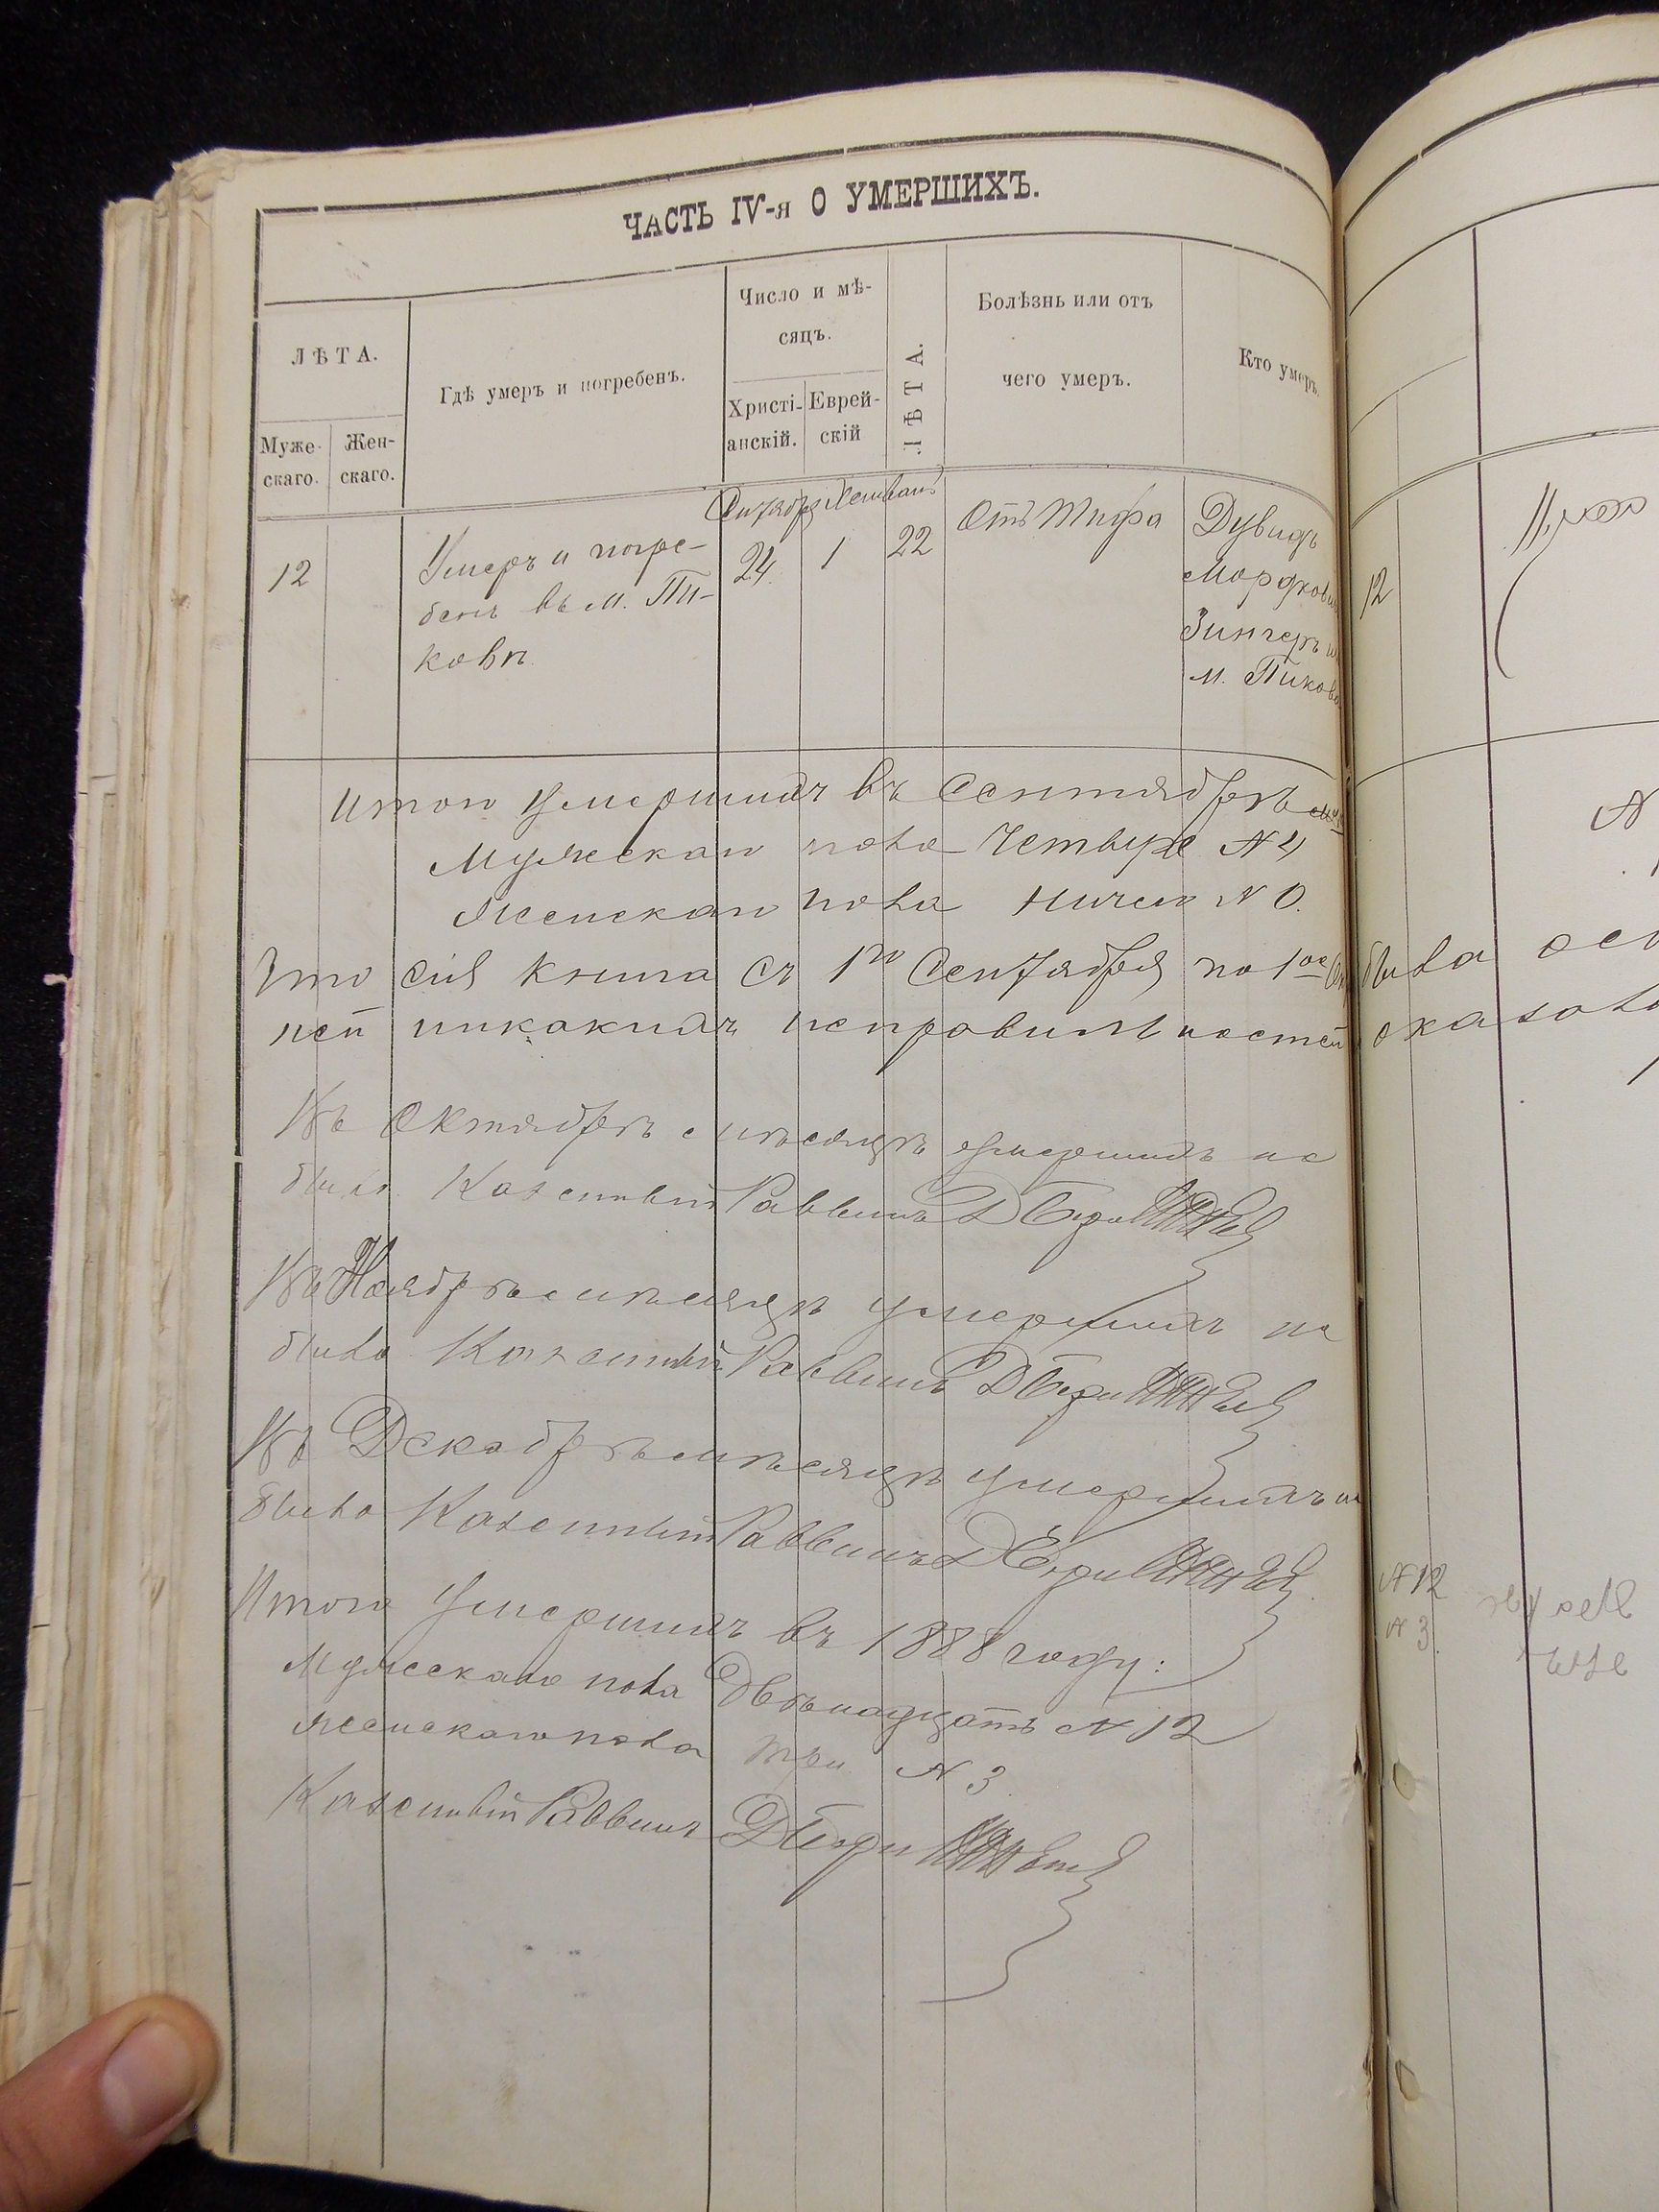 ЧАСТЬ IV-я О УМЕРШИХЪ.
ЛѢТА.
Муже-
скаго.
Жен-
скаго.
Гдѣ умеръ и погребенъ.
Число и мѣ-
сяцъ.
Христі-
анскій.
Еврей-
скій
ЛѢТА.
Болѣзнь или отъ
чего умеръ.
Кто умеръ.
Сентябрь Хешванъ
12
Умеръ и погре-
бенъ въ м. Пи-
ковѣ
24
1
22
Отъ тифа
Дувидъ
Мордкови
Зингеръ
м. Пиков
12
Итого умершихъ въ Сентябрѣ
Мужескаго пола Четыре №4
Женскаго пола ничего № 0.
Что сія книга съ 1го Сентября по 1ое была
ней никакихъ неправильностей оказало
Въ Октябрѣ мѣсяцѣ умершихъ не
было Казенный Раввинъ Д
Въ Ноябрѣ мѣсяцѣ умершихъ не
было Казенный Раввинъ Д
Въ Декабрѣ мѣсяцѣ умершихъ не
было Казенный Раввинъ Д
Итого умершихъ въ 1888 году:
Мужескаго пола Двѣнадцать № 12
Женскаго пола три № 3
Казенный Раввинъ Д
№ 12
№ 3